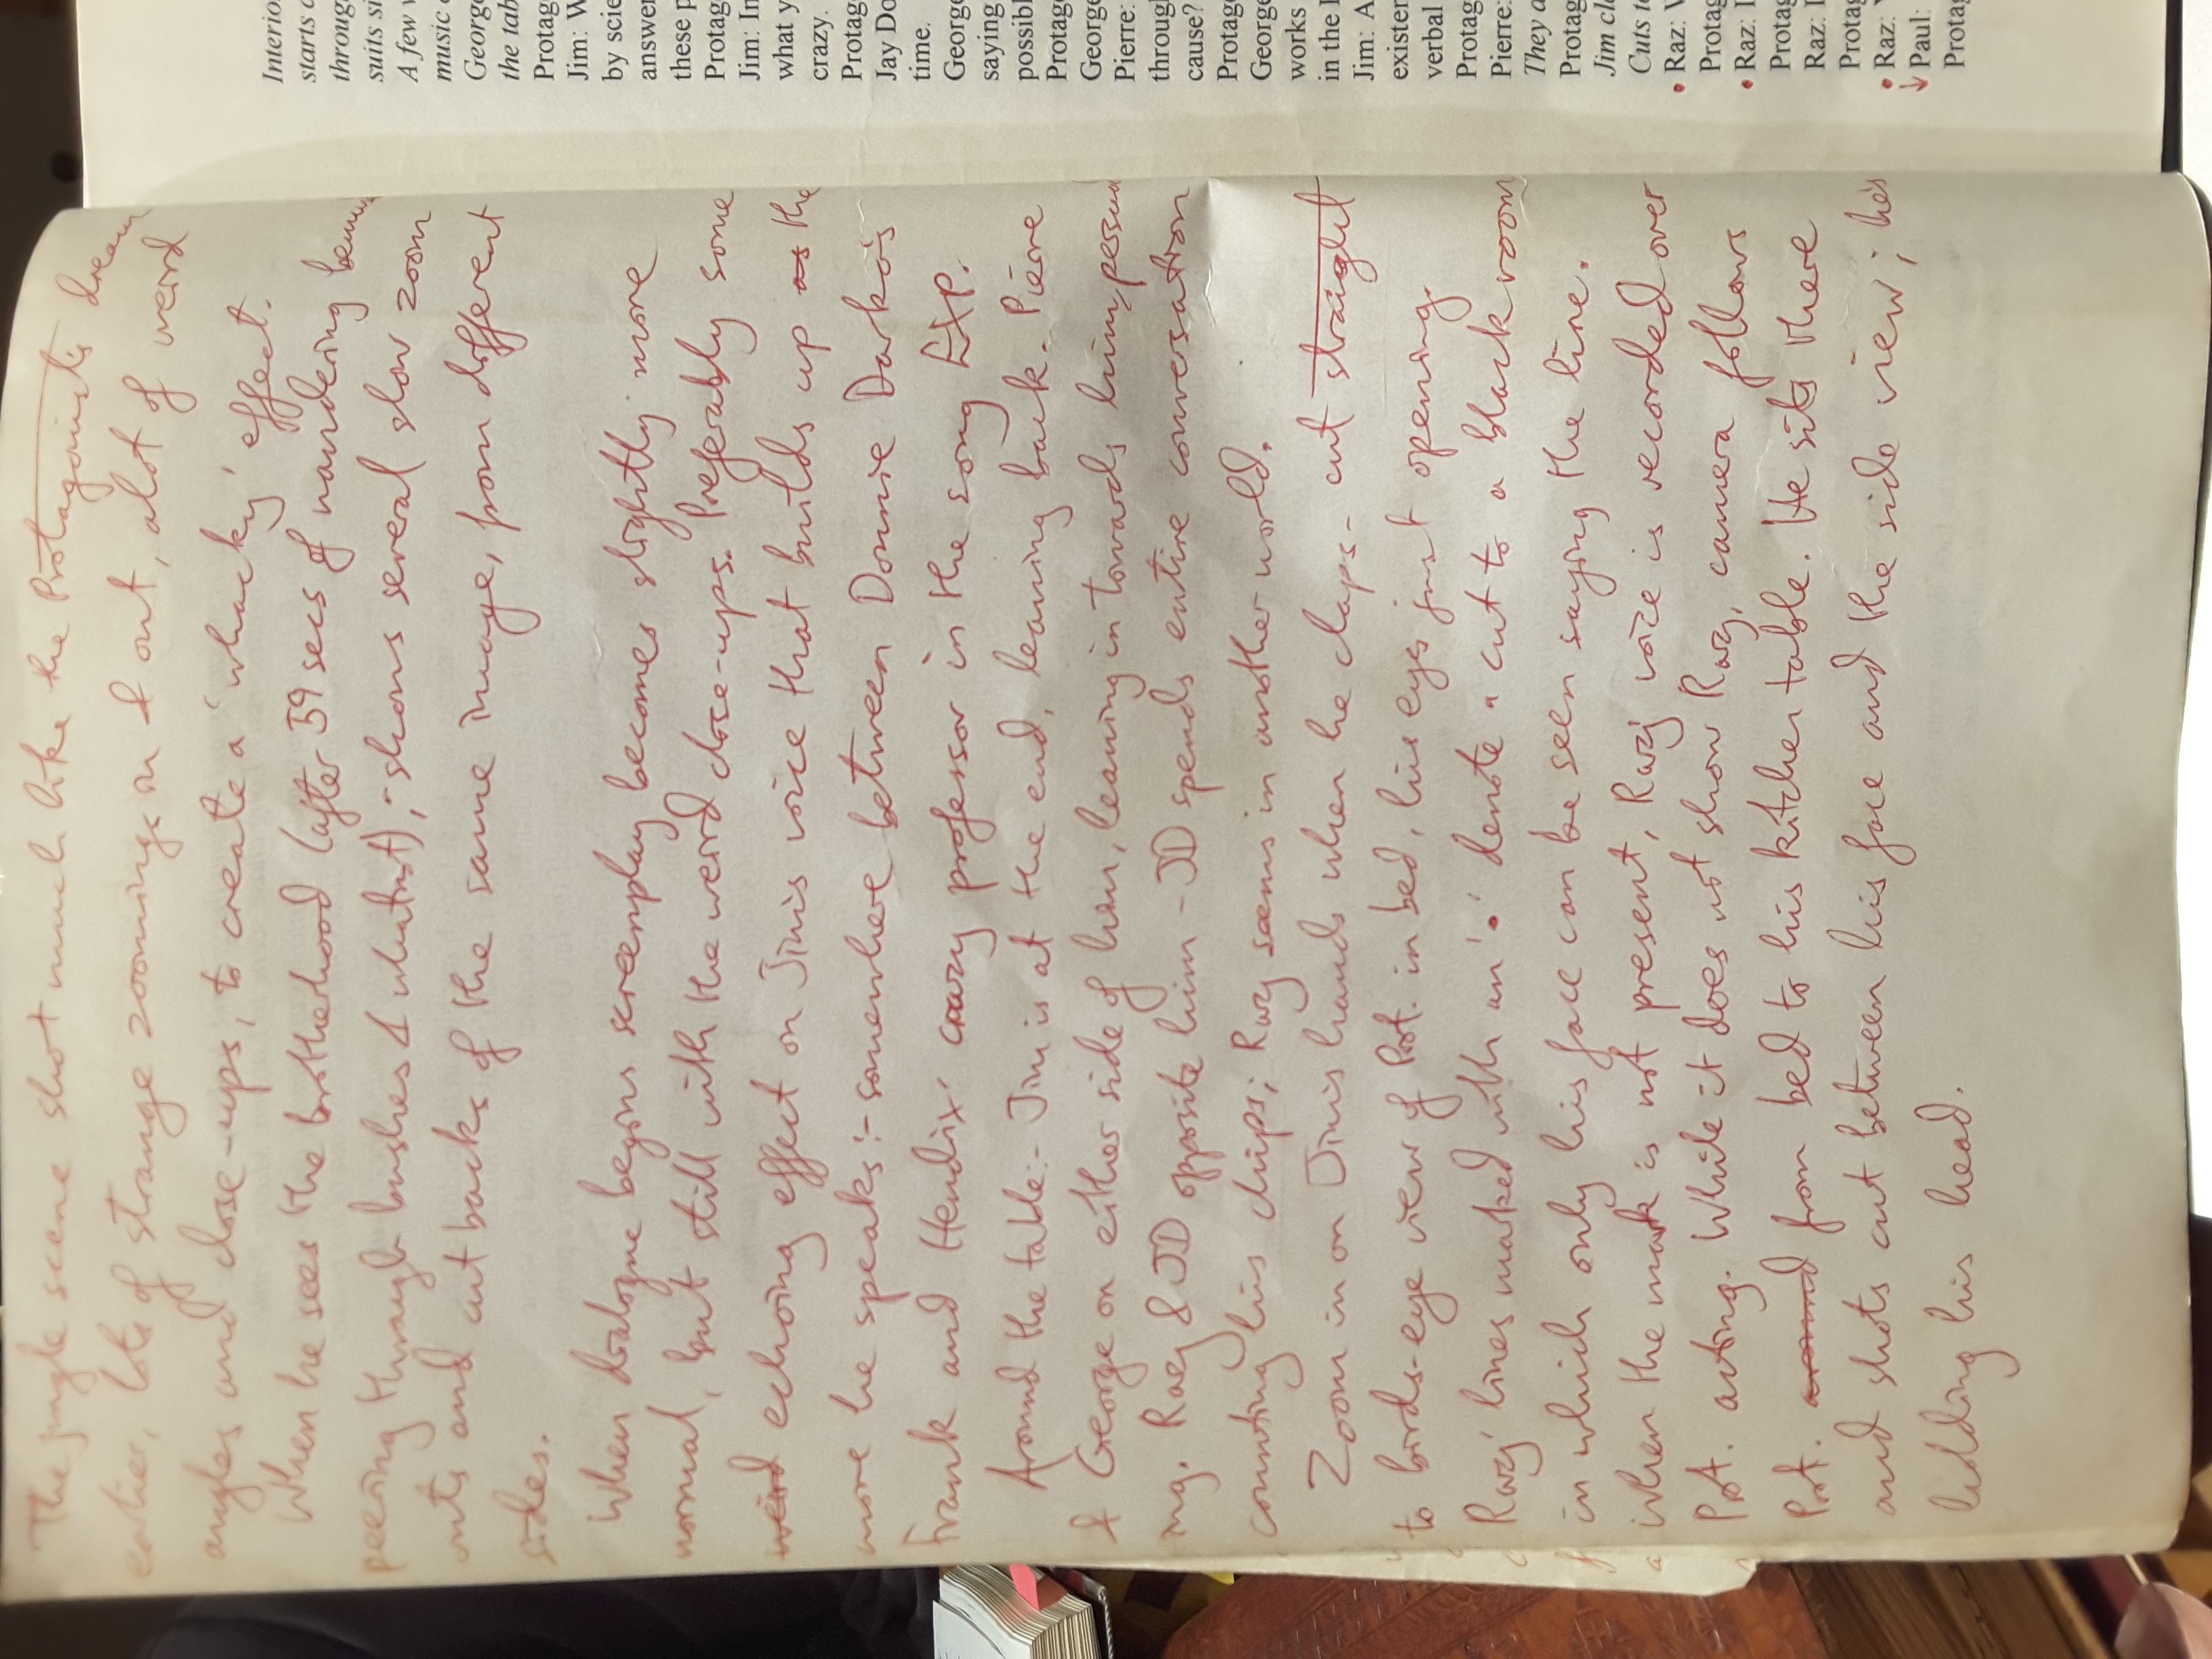 The jungle scene shot much like the Protagonist's dream
earlier, lots of strange zoomings in & out, alot of weird
angles and close-ups, to create a 'whacky' effect.
When he sees the brotherhood (after 59 secs of wandering
peering through bushes & whatnot), :- shows several slow zoom
outs and cut backs of the same image, from different
sides.
When dialogue begins screenplay becomes slightly more
normal, but still with the weird close-ups. Preferably some
weird echoing effect on Jim's voice that builds up as the
more he speaks :- somewhere between Donnie Darko's
Frank and Hendrix' crazy professor in the song EXP.
Around the table:- Jim is at the end, leaning back. Pierre
& George on either side of him, leaning in towards him, persua
ing. Raz & JD opposite him - JD spends entire conversation
counting his chips; Raz seems in another world.
Zoom in on Jim's hands when he claps - cut straight
to birds-eye view of Prot. in bed, his eyes just opening.
Raz' lines marked with an '•' denote a cut to a black room
in which only his face can be seen saying the line.
When the mark is not present, Raz' voice is recorded over
Prot. acting. While it does not show Raz, camera follows
Prot. around from bed to his kitchen table. He sits there
and shots cut between his face and the side view; he's
holding his head.
Interio
starts
through
suits si
A few
music
George
the tab
Protag
Jim: W
by scie
answer
these p
Protag
Jim: In
what y
crazy.
Protag
Jay Do
time.
George
saying
possibl
Protag
George
Pierre:
through
cause?
Protag
George
works
in the
Jim: A
existen
verbal
Protag
Pierre:
They a
Protag
Jim cl
Cuts t
• Raz:
Protag
• Raz: I
Protag
Raz: I
Protag
• Raz: Y
↓ Paul:
Protag